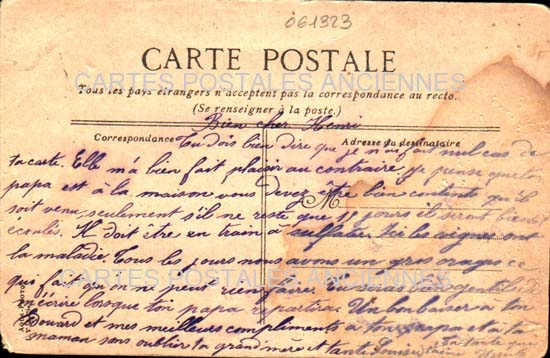 061323
CARTE POSTALE
CARTES POSTALES ANCIENNES
Tous les pays étrangers n'acceptent pas la correspondance au recto.
(Se renseigner à la poste.)
Bien cher Henri
Correspondance
Adresse du destinataire
Tu dois bien dire que je n'ai fait nul cas de
ta carte. Elle m'a bien fait plaisir au contraire. Je pense que ton
papa est à la maison vous devez être bien contents qu'il
M
soit venu seulement s'il ne reste que 15 jours il seront bientôt
écoulés. Il doit être en train à sulfater. Ici les vignes ont
la maladie. Tous les jours nous avons un gros orage ce
CARTES POSTALES ANCIENNES
qui fait qu'on ne peut rien faire. Tu seras bien gentil de
m'écrire losque ton papa repartira. Un bon baiser à ton
Edouard et mes meilleurs compliments à ton papa et à ta
maman sans oublier ta grand mère et tante Louise
Ta tante que